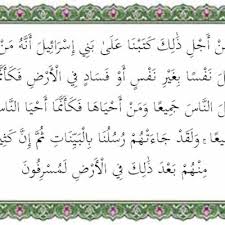 مِنْ أَجْلِ ذَٰلِكَ كَتَبْنَا عَلَىٰ بَنِي إِسْرَائِيلَ أَنَّهُ مَنْ
نَفْسًا بِغَيْرِ نَفْسٍ أَوْ فَسَادٍ فِي الْأَرْضِ فَكَأَنَّمَا
النَّاسَ جَمِيعًا وَمَنْ أَحْيَاهَا فَكَأَنَّمَا أَحْيَا النَّاسَ
وَلَقَدْ جَاءَتْهُمْ رُسُلُنَا بِالْبَيِّنَاتِ ثُمَّ إِنَّ
مِنْهُمْ بَعْدَ ذَٰلِكَ فِي الْأَرْضِ لَمُسْرِفُونَ